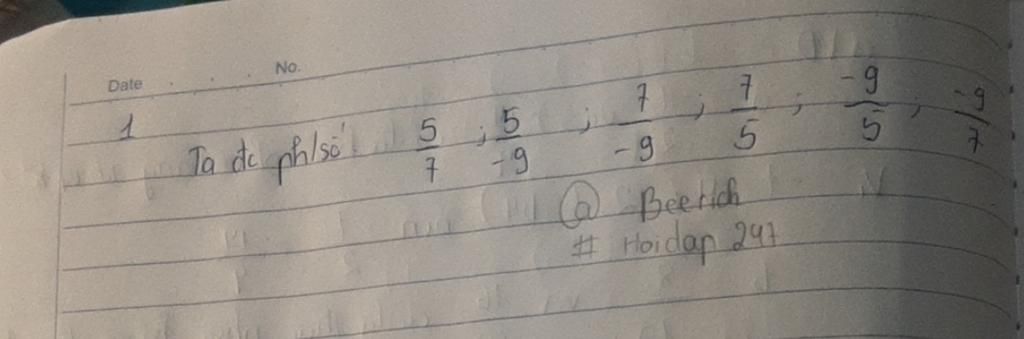 Date No.
1
Ta dc ph/số 5/7 ; 5/-9 ; 7/-9 ; 7/5 ; -9/5 ; -9/7
@ Beerich
# Hoidap 247